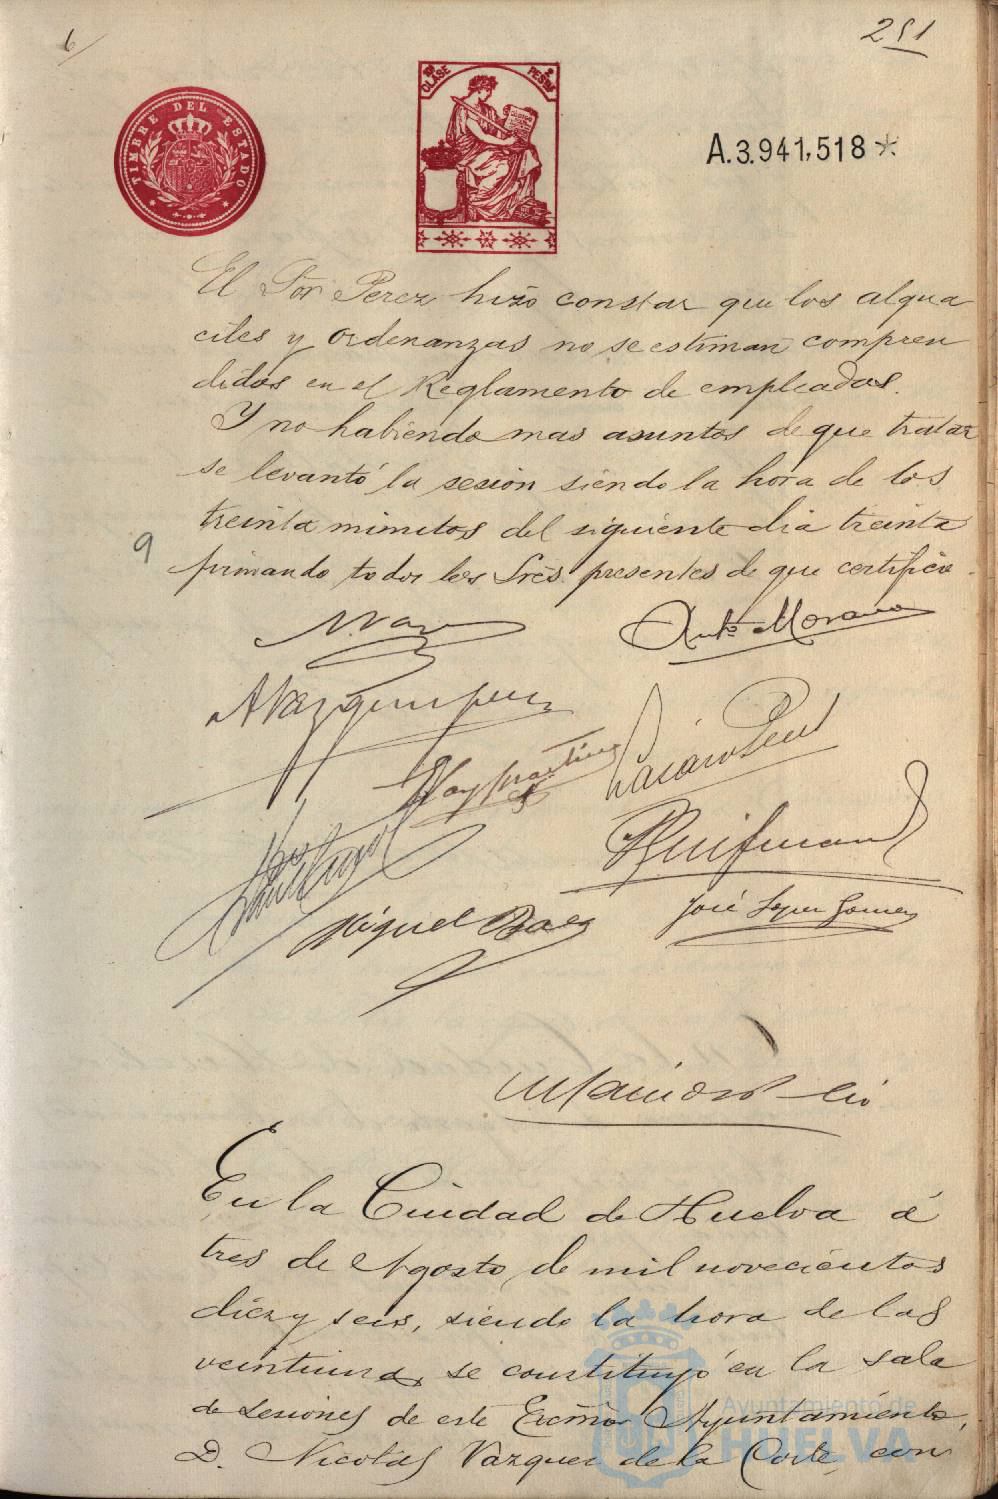 6/
251
TIMBRE DEL ESTADO
10ª CLASE
2 PESTAS
A.3.941,518*
El Sör Perez hizo constar que los algua
ciles y ordenanzas no se estiman compren
didos en el Reglamento de empleados.
Y no habiendo mas asuntos de que tratar
se levantó la sesión siendo la hora de los
treinta minutos del siguiente dia treinta
9
firmando todos los Sres. presentes de que certifico.
Antº Moreno
José Lopez Gomez
Miguel Baez
En la Ciudad de Huelva á
tres de Agosto de mil novecientos
diez y seis, siendo la hora de las
veintiuna, se constituyó en la sala
de sesiones de este Excmo Ayuntamiento,
D. Nicolás Vazquez de la Corte, con
Ayuntamiento de
HUELVA